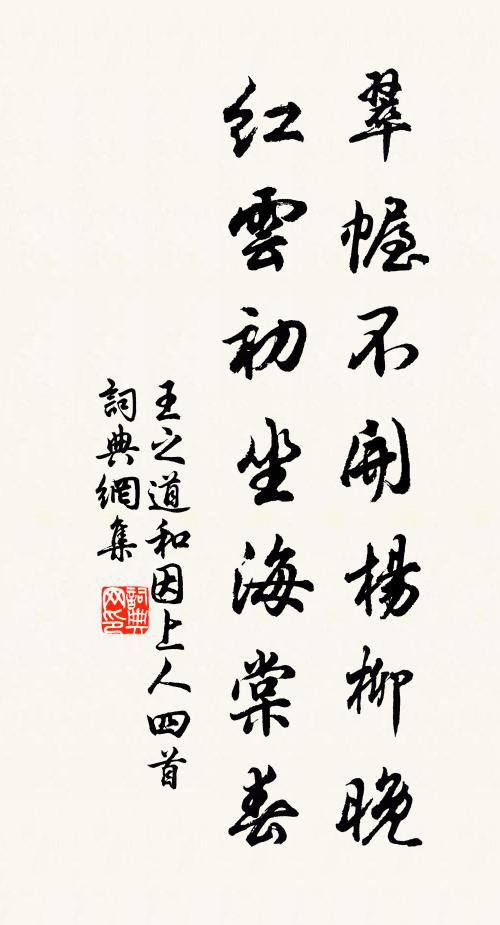 翠幄不開楊柳晚
紅雲初坐海棠春
王之道和因上人四首
詞典網集
詞典
网印